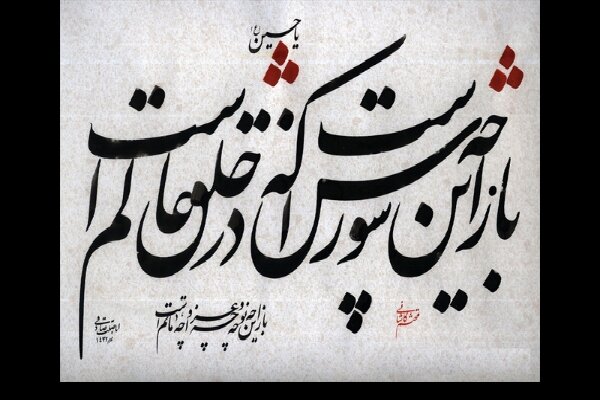 یا حسین (ع)
باز این چه شورش است که در خلق عالم است
باز این چه نوحه و چه عزا و چه ماتم است
محتشم کاشانی